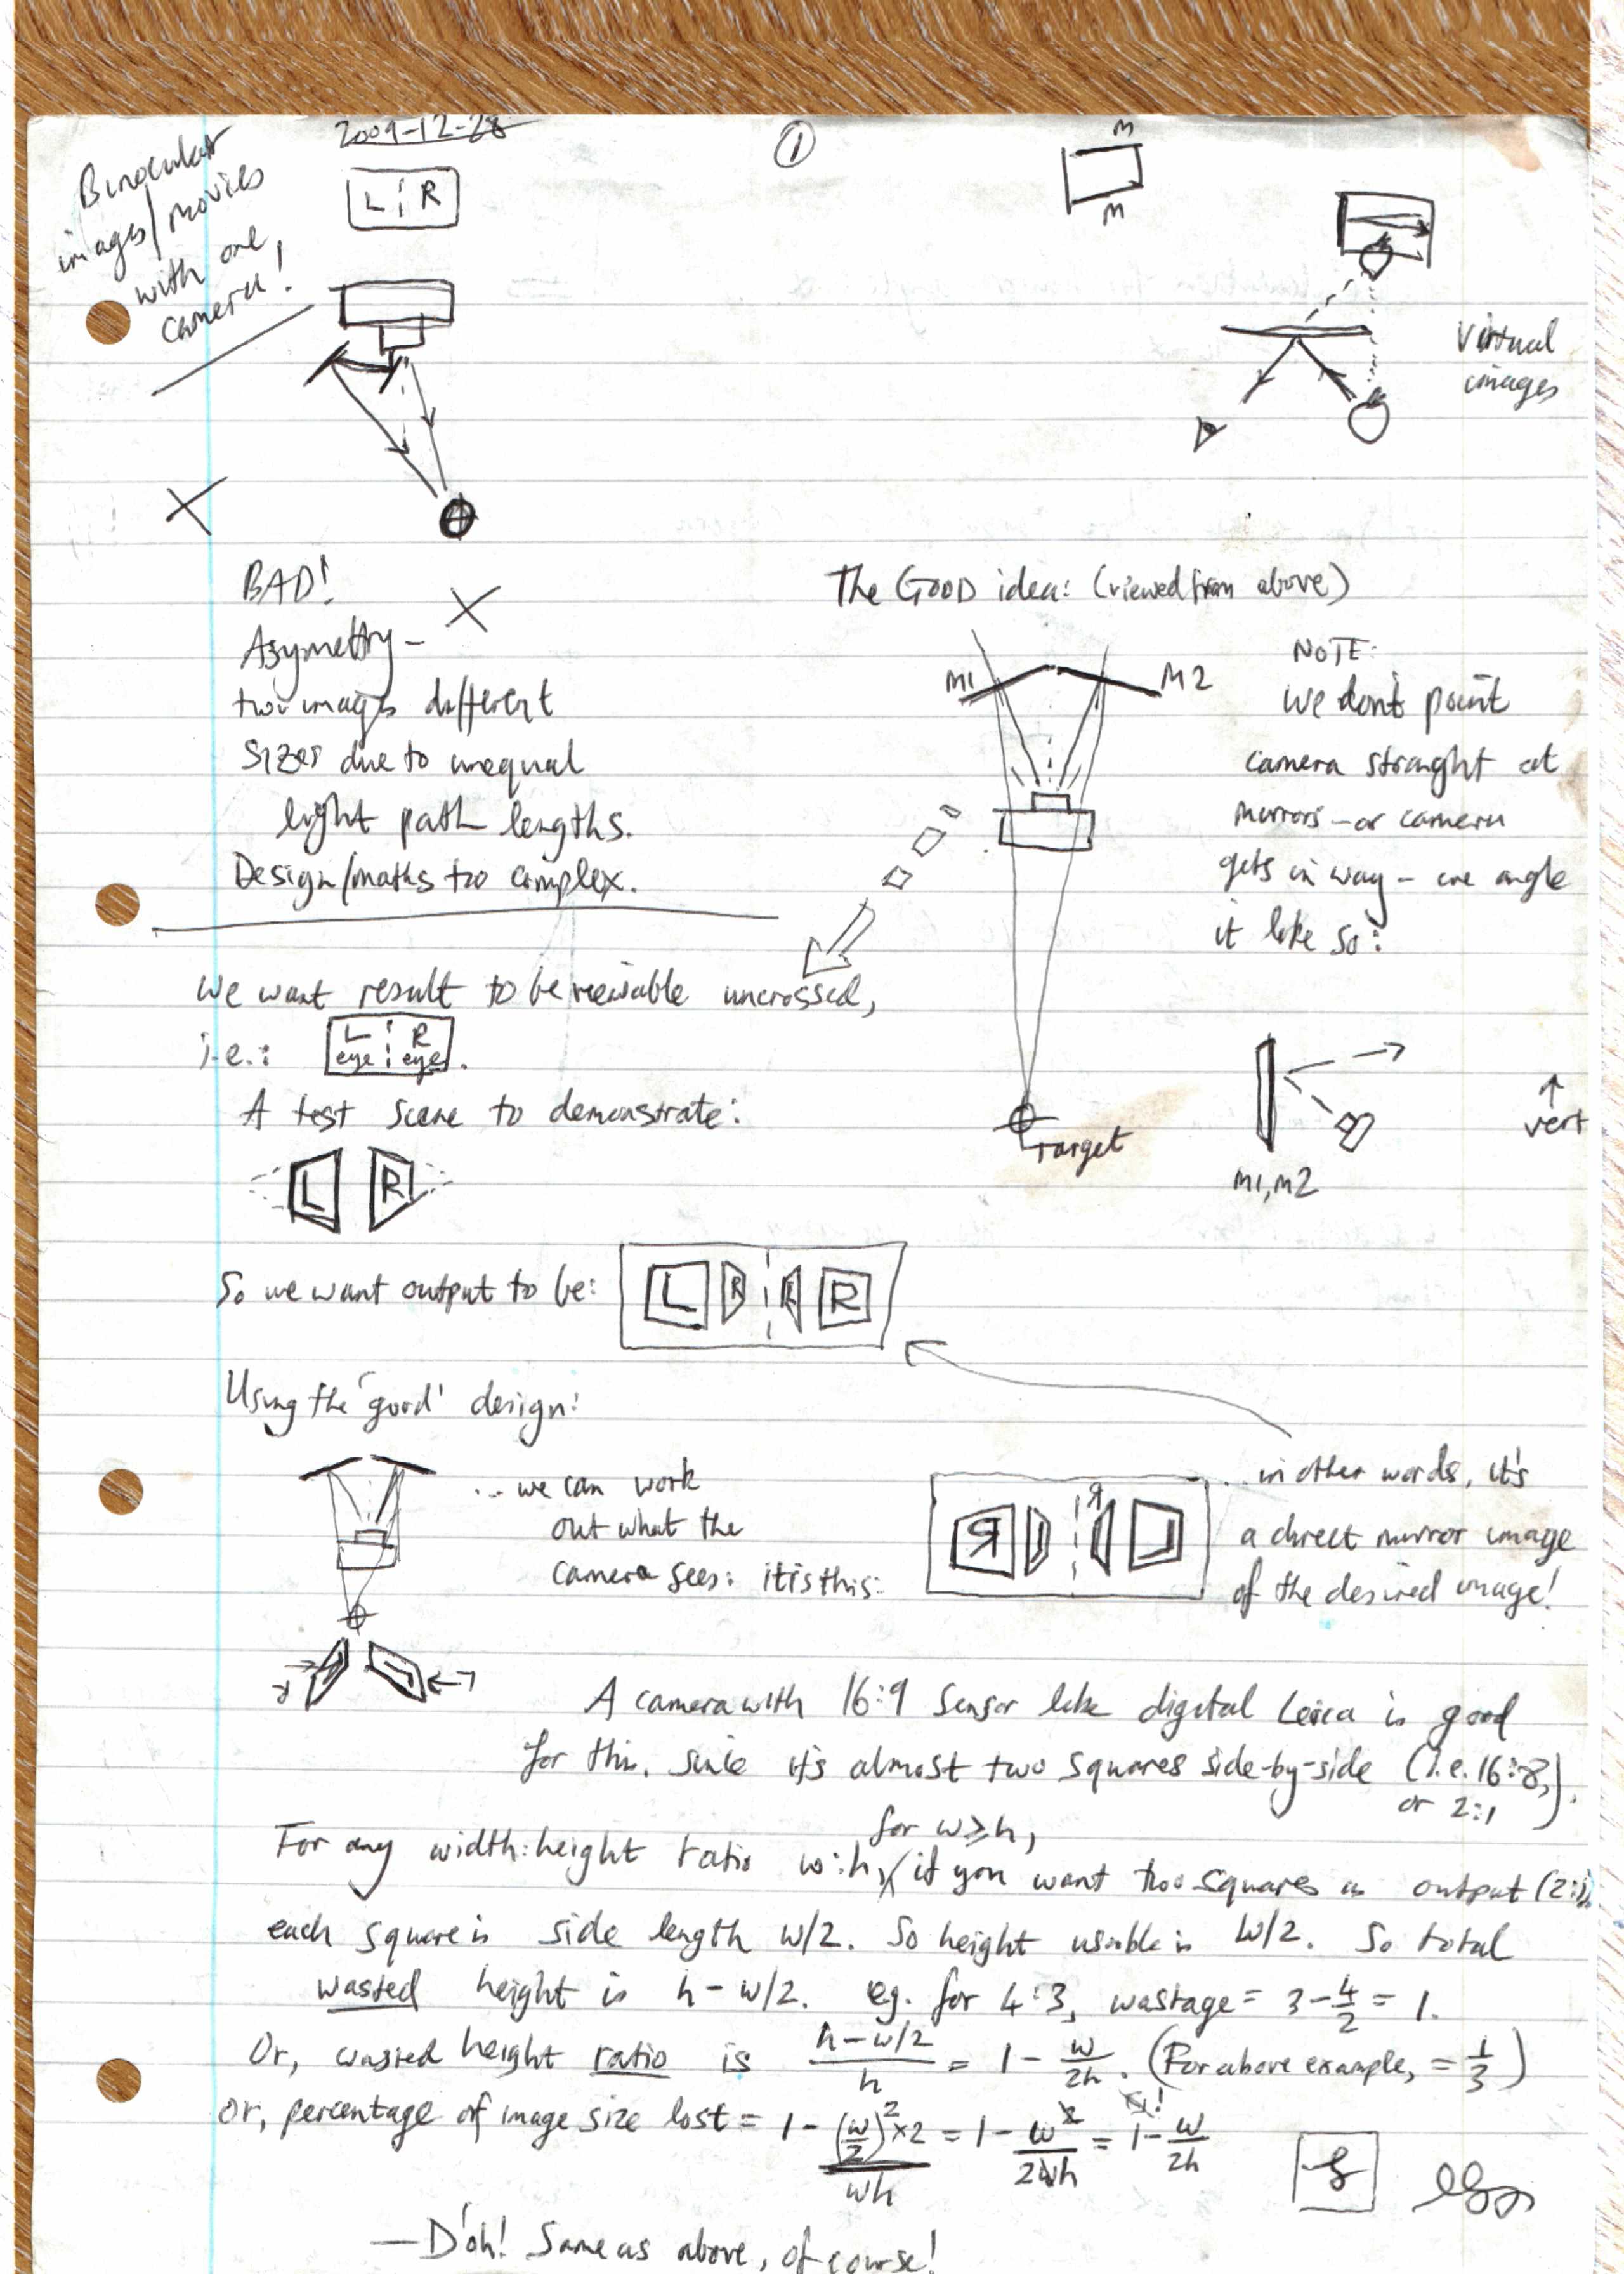 2009-12-28
①
Binocular
images/movies
with one
camera!
L R
M
M
Virtual
images
BAD!
Asymettry -
two images different
sizes due to unequal
light path lengths.
Design/maths too complex.
The GOOD idea: (viewed from above)
M1 M2
NOTE:
We don't point
camera straight at
mirrors - or camera
gets in way - we angle
it like so:
Target
M1, M2
↑
vert
We want result to be viewable uncrossed,
i.e.: L eye R eye.
A test scene to demonstrate:
L R
So we want output to be: L R L R
Using the 'good' design:
... we can work
out what the
camera sees: it is this:
... in other words, it's
a direct mirror image
of the desired image!
A camera with 16:9 sensor like digital Leica is good
for this, since it's almost two squares side-by-side (i.e. 16:8,
or 2:1).
For any width:height ratio w:h, for w≥h, if you want two squares as output (2:1),
each square is side length w/2. So height usable is w/2. So total
wasted height is h - w/2. eg. for 4:3, wastage = 3 - 4/2 = 1.
Or, wasted height ratio is (h - w/2)/h = 1 - w/2h. (For above example, = 1/3)
or, percentage of image size lost = 1 - ((w/2)² × 2)/wh = 1 - w²/2wh = 1 - w/2h
- D'oh! Same as above, of course!